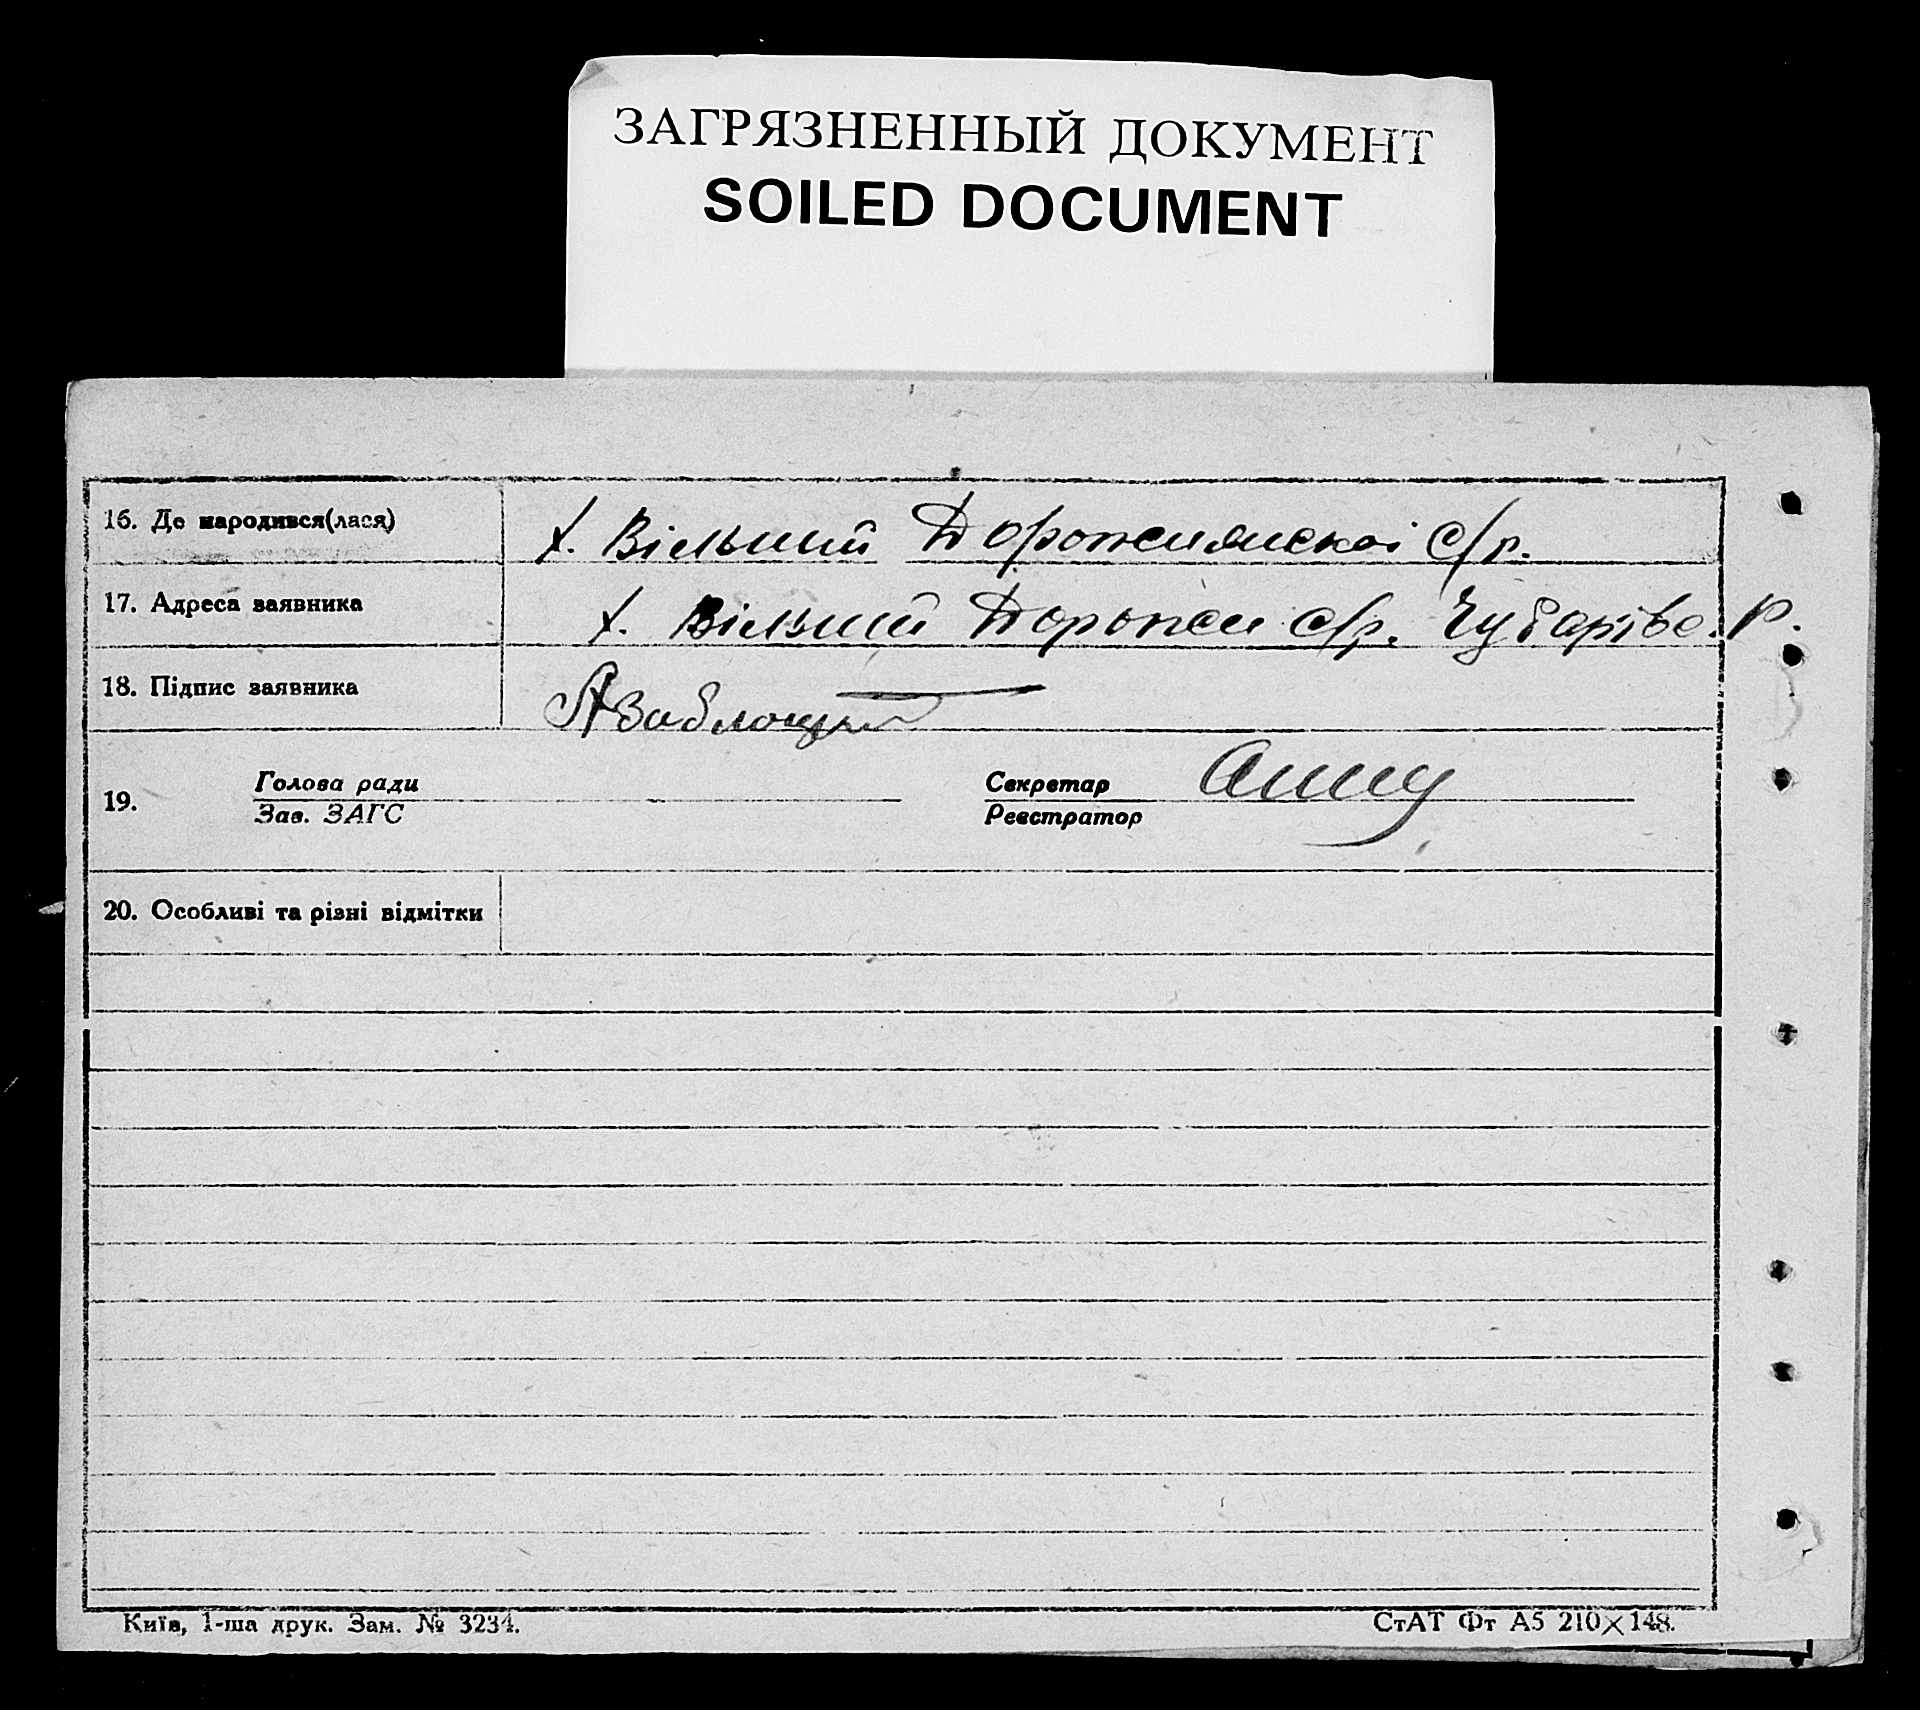 ЗАГРЯЗНЕННЫЙ ДОКУМЕНТ
SOILED DOCUMENT
16. Де народився(лася)
х. Вільний Дорожнянскоі с/р.
17. Адреса заявника
х. Вільний Дорожн с/р. Чубарівс. р.
18. Підпис заявника
А Заблоцкий
19. Голова ради
Зав. ЗАГС
Секретар
Реєстратор
20. Особливі та різні відмітки
Київ, 1-ша друк. Зам. № 3234.
СтАТ Фт А5 210×148.